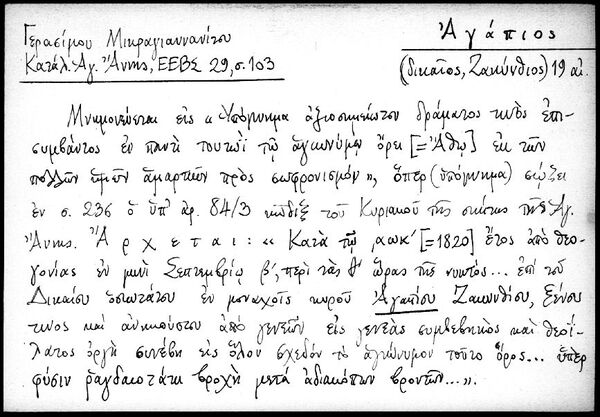 Γερασίμου Μικραγιαννανίτου
Κατάλ. Ἁγ. Ἄννης, ΕΕΒΣ 29, σ. 103
Ἀγάπιος
(δικαῖος, Ζακύνθιος) 19 αἰ.
Μνημονεύεται εἰς « Ὑπόμνημα ἀξιοσημείωτον δράματος τινὸς ἐπι-
συμβάντος ἐν παντὶ τουτωὶ τῷ ἁγιωνύμῳ ὄρει [=Ἄθῳ] ἐκ τῶν
πολλῶν ἡμῶν ἁμαρτιῶν πρὸς σωφρονισμόν», ὅπερ (ὑπόμνημα) σῴζει
ἐν σ. 236 ὁ ὑπ' ἀρ. 84/3 κῶδιξ τοῦ Κυριακοῦ τῆς σκήτης τῆς Ἁγ.
Ἄννης. Ἄρχεται: « Κατὰ τῷ ͵αωκ' [=1820] ἔτος ἀπὸ θεο-
γονίας ἐν μηνὶ Σεπτεμβρίῳ β', περὶ τὰς θ' ὥρας τῆς νυκτός... ἐπὶ τοῦ
Δικαίου ὁσιωτάτου ἐν μοναχοῖς κυροῦ Ἀγαπίου Ζακυνθίου, ξένον
τινὸς καὶ ἀνηκούστου ἀπὸ γενεῶν εἰς γενεὰς συμβεβηκὸς καὶ θεοΐ-
λατος ὀργὴ συνέβη εἰς ὅλον σχεδὸν τὸ ἁγιώνυμον τοῦτο ὄρος... ὑπὲρ
φύσιν ῥαγδαιοτάτη βροχὴ μετὰ ἀδιακόπων βροντῶν...».